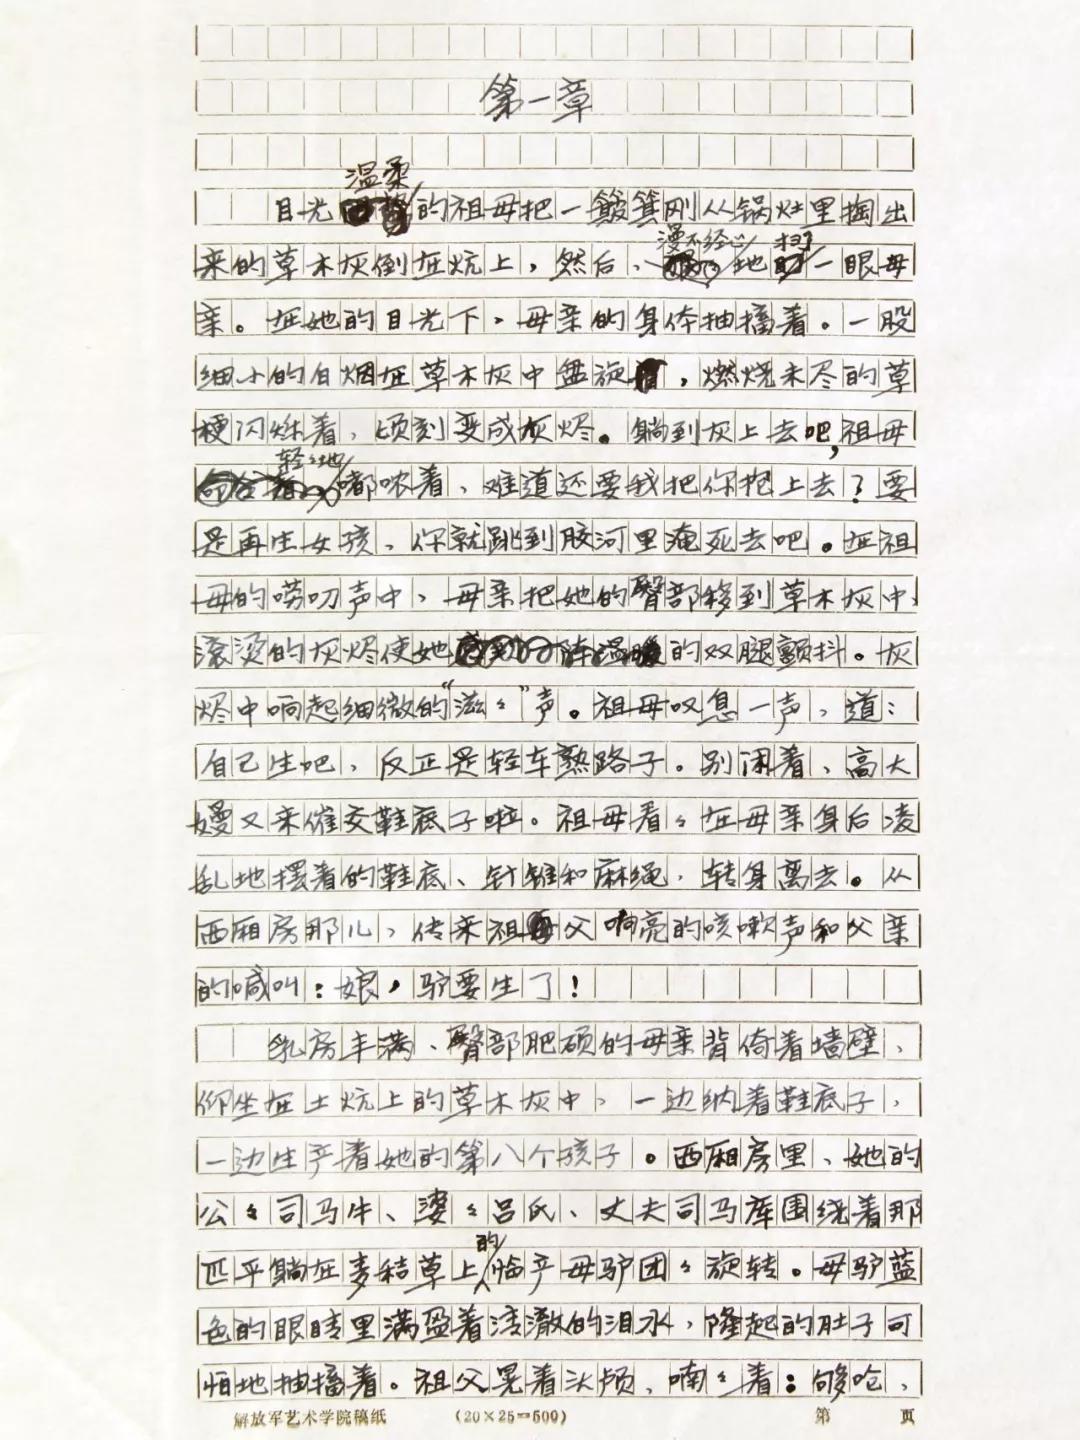 第一章
温柔
目光的祖母把一簸箕刚从锅灶里掏出
漫不经心 扫了
来的草木灰倒在炕上，然后，地一眼母
亲。在她的目光下，母亲的身体抽搐着。一股
细小的白烟在草木灰中盘旋，燃烧未尽的草
梗闪烁着，顷刻变成灰烬。躺到灰上去吧，祖母
轻々地
嘟哝着，难道还要我把你抱上去？要
是再生女孩，你就跳到胶河里淹死去吧。在祖
母的唠叨声中，母亲把她的臀部移到草木灰中，
滚烫的灰烬使她的双腿颤抖。灰
烬中响起细微的“滋々”声。祖母叹息一声，道：
自己生吧，反正是轻车熟路子。别闲着，高大
嫚又来催交鞋底子啦。祖母看々在母亲身后凌
乱地摆着的鞋底、针锥和麻绳，转身离去。从
西厢房那儿，传来祖父响亮的咳嗽声和父亲
的喊叫：娘，驴要生了！
乳房丰满、臀部肥硕的母亲背倚着墙壁，
仰坐在土炕上的草木灰中，一边纳着鞋底子，
一边生产着她的第八个孩子。西厢房里，她的
公々司马牛、婆々吕氏、丈夫司马库围绕着那
的
匹平躺在麦秸草上临产母驴团々旋转。母驴蓝
色的眼睛里满盈着清澈的泪水，隆起的肚子可
怕地抽搐着。祖父晃着头颅，喃々着：够呛，
解放军艺术学院稿纸 (20×25=500) 第 页